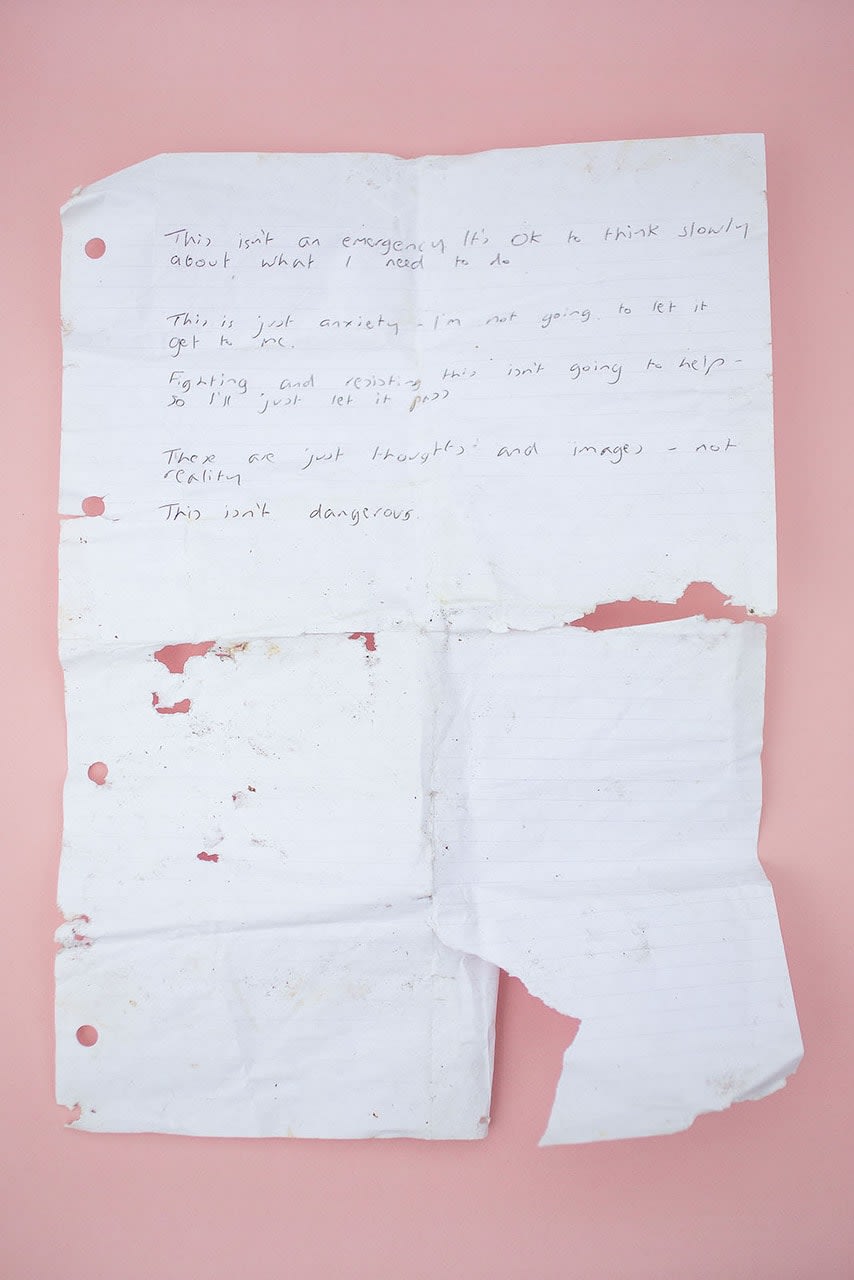 This isn't an emergency It's OK to think slowly
about what I need to do
This is just anxiety - I'm not going to let it
get to me.
Fighting and resisting this isn't going to help -
so I'll just let it pass
These are just thoughts and images - not
reality
This isn't dangerous.